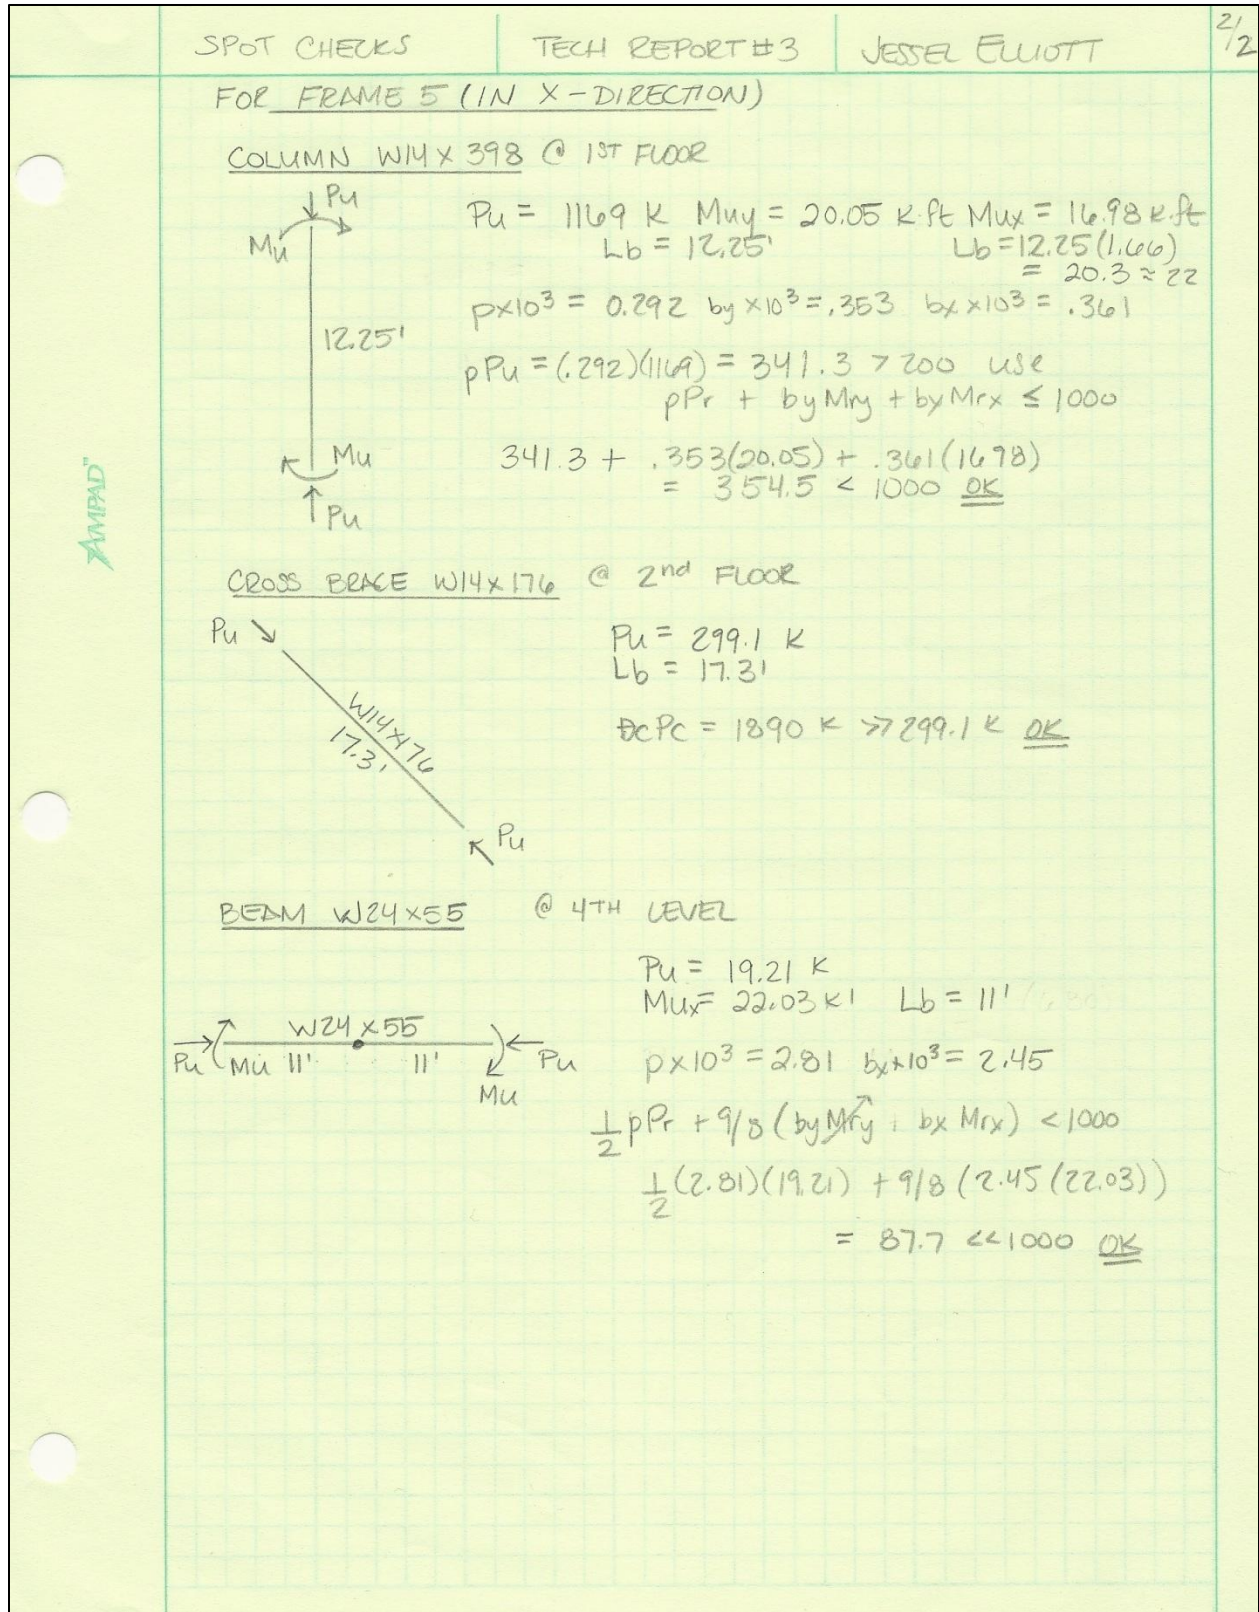 SPOT CHECKS TECH REPORT #3 JESSEL ELLIOTT 2/2
FOR FRAME 5 (IN X-DIRECTION)
COLUMN W14 X 398 @ 1ST FLOOR
Pu
Mu
12.25'
Mu
Pu
Pu = 1169 K Muy = 20.05 K·ft Mux = 16.98 K·ft
Lb = 12.25' Lb = 12.25(1.66)
= 20.3 ≈ 22
p×10³ = 0.292 by ×10³ = .353 bx ×10³ = .361
pPu = (.292)(1169) = 341.3 > 200 use
pPr + by Mry + by Mrx ≤ 1000
341.3 + .353(20.05) + .361(16.98)
= 354.5 < 1000 OK
AMPAD™
CROSS BRACE W14×176 @ 2nd FLOOR
Pu
W14×176
17.3'
Pu
Pu = 299.1 K
Lb = 17.3'
ΦcPc = 1890 K >> 299.1 K OK
BEAM W24×55 @ 4TH LEVEL
Pu = 19.21 K
Mux = 22.03 K' Lb = 11'
W24×55
Pu Mu 11' 11' Pu
Mu
p×10³ = 2.81 bx×10³ = 2.45
1/2 pPr + 9/8 (by Mry + bx Mrx) < 1000
1/2 (2.81)(19.21) + 9/8 (2.45 (22.03))
= 87.7 << 1000 OK